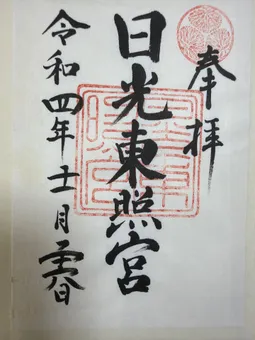 奉拝
日光東照宮
令和四年十一月